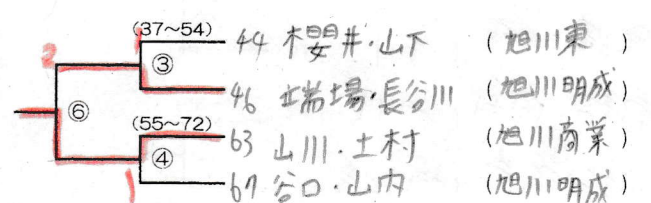 (37~54)
44 櫻井・山下 (旭川東)
2 ③
46 端場・長谷川 (旭川明成)
⑥
(55~72)
63 山川・土村 (旭川商業)
④
1
67 谷口・山内 (旭川明成)